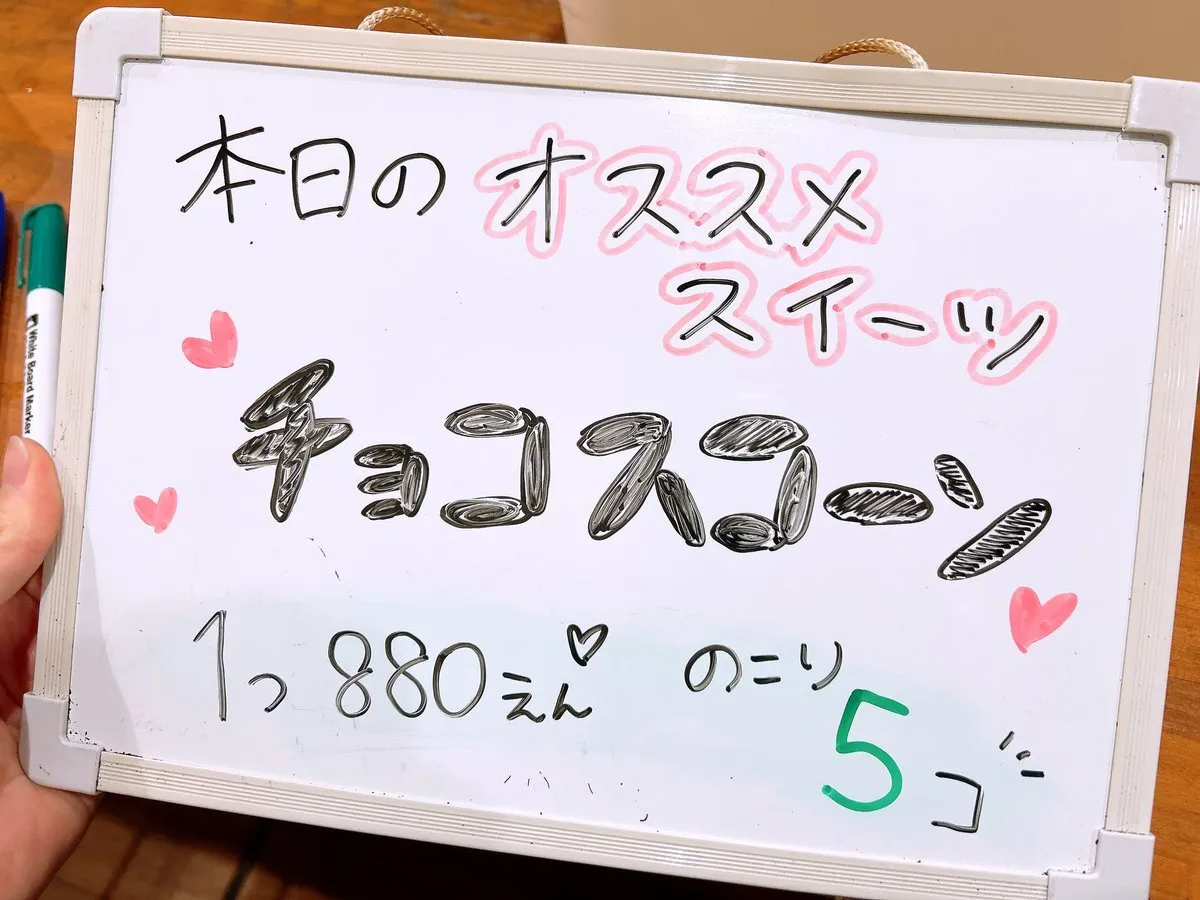 本日のオススメ
スイーツ
チョコスコーン
1つ 880えん♡ のこり
5コ
White Board Marker